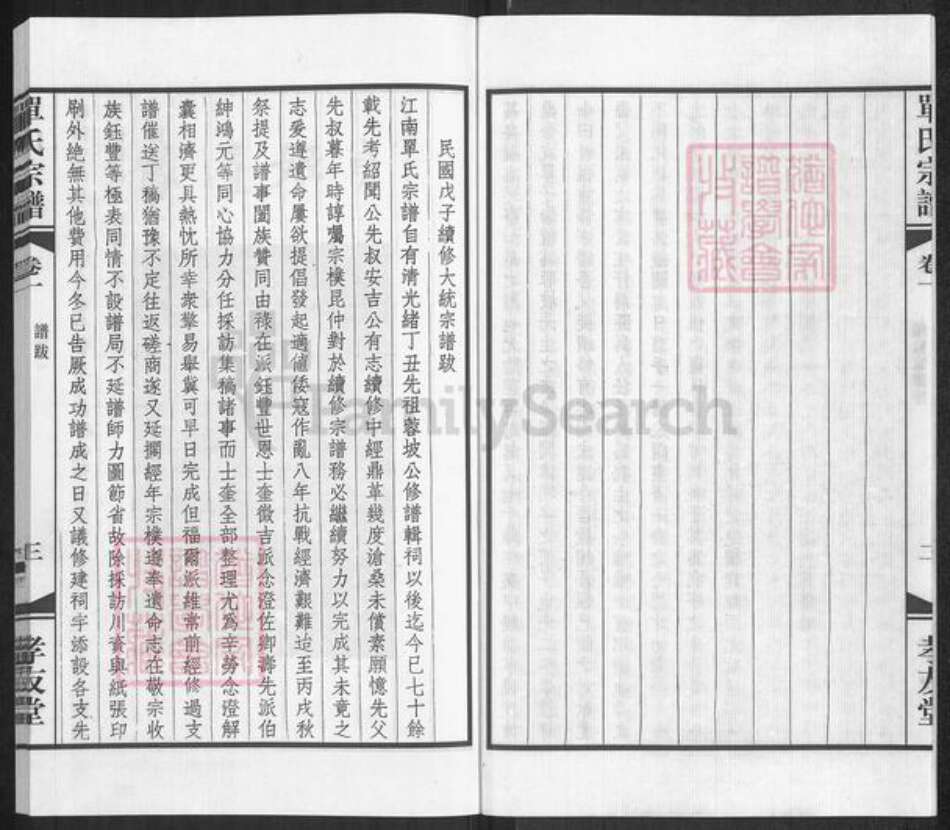 單氏宗譜
卷一
二
孝友堂
民國戊子續修大統宗譜跋
江南單氏宗譜自有清光緒丁丑先祖蓉坡公修譜輯祠以後迄今已七十餘
載先考紹聞公先叔安吉公有志續修中經鼎革幾度滄桑未償素願憶先父
先叔暮年時諄囑宗樸昆仲對於續修宗譜務必繼續努力以完成其未竟之
志爰遵遺命屢欲提倡發起適値倭寇作亂八年抗戰經濟艱難迨至丙戌秋
祭提及譜事闔族贊同由祿在派鈺豐世恩士奎微吉派念澄佐卿壽先派伯
紳鴻元等同心協力分任採訪集稿諸事而士奎全部整理尤爲辛勞念澄解
囊相濟更具熱忱所幸衆擎易舉冀可早日完成但福爾派維常前經修過支
譜催送丁稿猶豫不定往返磋商遂又延擱經年宗樸遵奉遺命志在敬宗收
族鈺豐等極表同情不設譜局不延譜師力圖節省故除採訪川資與紙張印
刷外絶無其他費用今冬已告厥成功譜成之日又議修建祠宇添設各支先
單氏宗譜
卷一
譜跋
三
孝友堂
FamilySearch